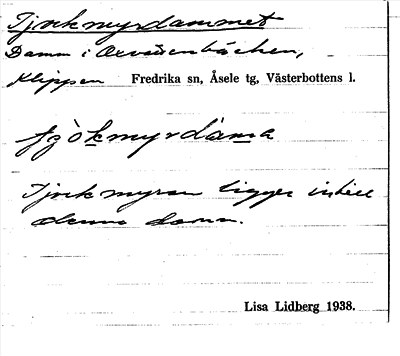 Tjockmyrdammet
Damm i Oxvattenbäcken,
Klippen Fredrika sn, Åsele tg, Västerbottens l.
tjòkmyrdàma
Tjockmyran ligger intill
denna damm.
Lisa Lidberg 1938.